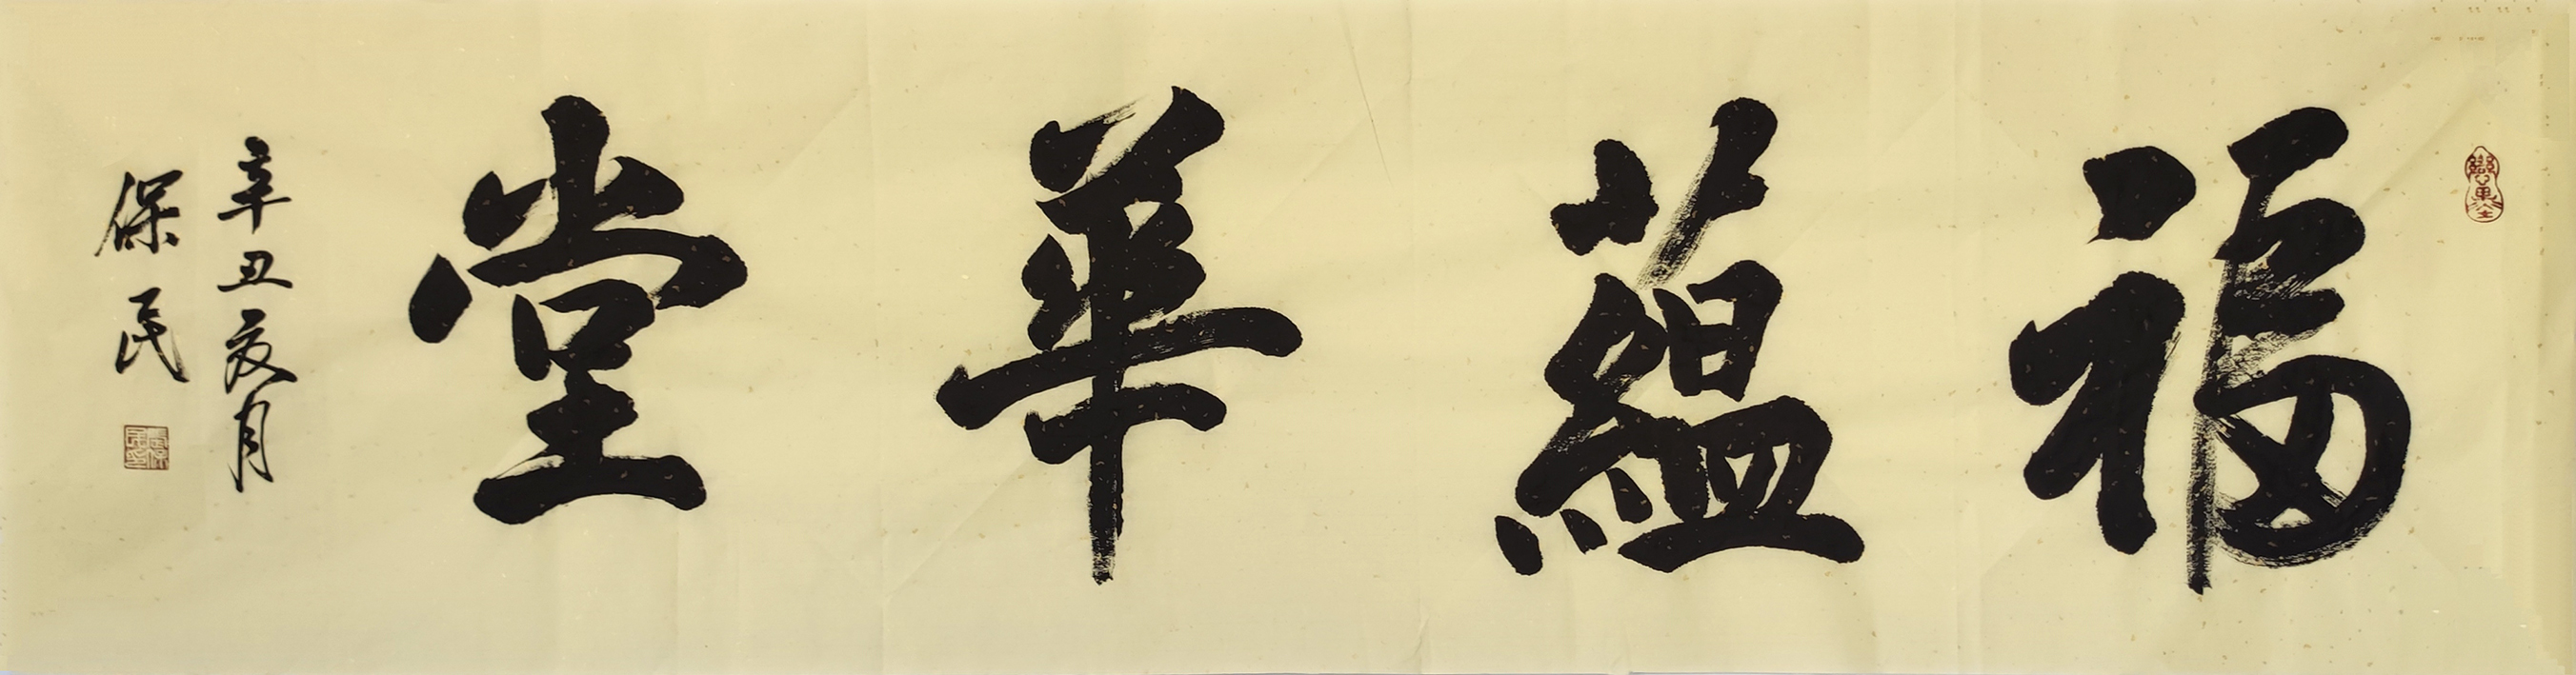 福蘊華堂
辛丑夏月
保民